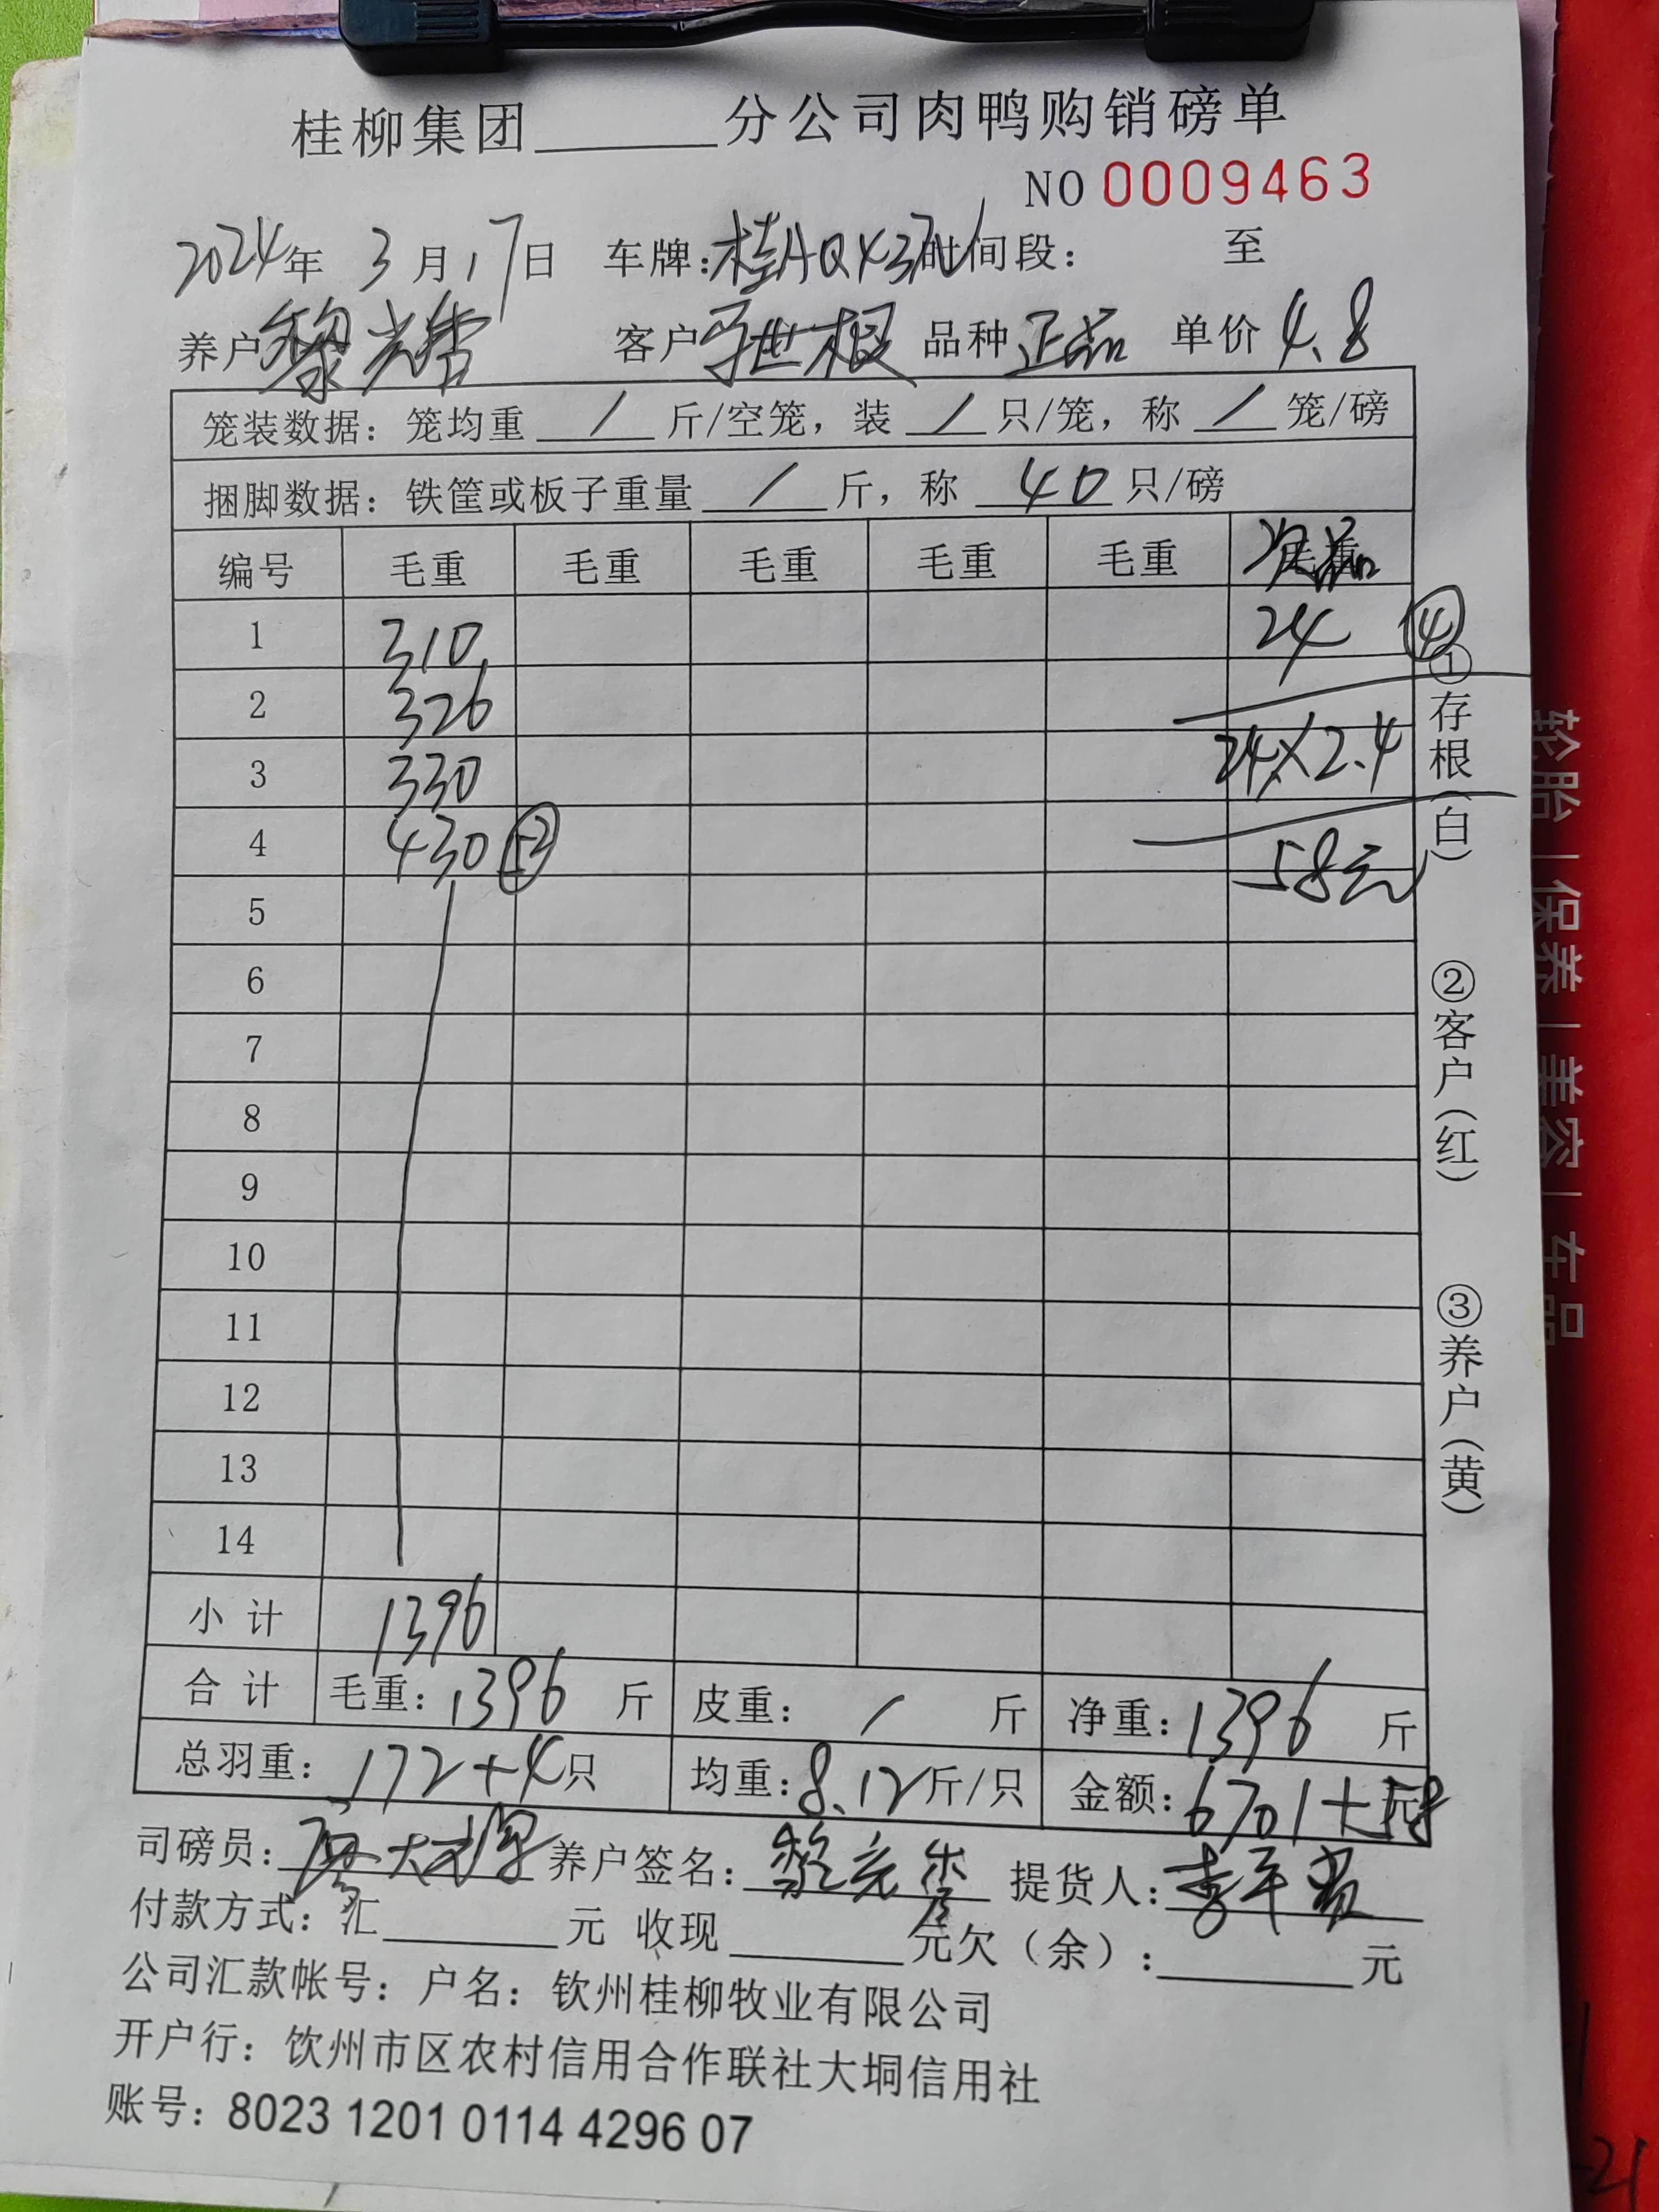 桂柳集团______分公司肉鸭购销磅单
NO 0009463
2024年 3月17日 车牌:桂AQX37 时间段: 至
养户 黎光 客户 世根 品种 正品 单价 4.8
笼装数据: 笼均重 / 斤/空笼, 装 / 只/笼, 称 / 笼/磅
捆脚数据: 铁筐或板子重量 / 斤, 称 40 只/磅
编号 毛重 毛重 毛重 毛重 毛重 次品
1 310 24 ④
2 326
3 330 24×2.4
4 430 52 58元
5
6
7
8
9
10
11
12
13
14
小计 1396
合计 毛重: 1396 斤 皮重: / 斤 净重: 1396 斤
总羽重: 172+4只 均重: 8.12斤/只 金额: 6701+58
司磅员: 大 养户签名: 黎 提货人: 李平
付款方式: 汇______元 收现______元欠(余):______元
公司汇款帐号: 户名: 钦州桂柳牧业有限公司
开户行: 饮州市区农村信用合作联社大垌信用社
账号: 8023 1201 0114 4296 07
①存根(白)
②客户(红)
③养户(黄)
轮胎|保养|美容|车品
-21